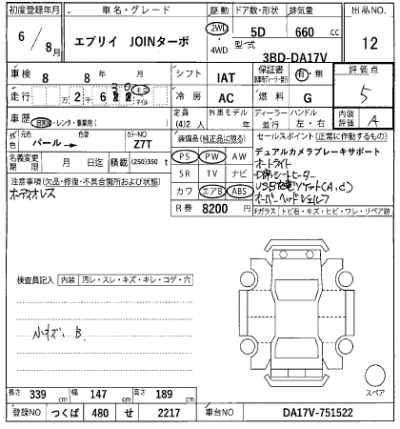 初度登録年月 車名・グレード 駆動 ドア数・形状 排気量 出品NO
6/8月 エブリイ JOINターボ 2WD・4WD 5D 660cc 12
型式 3BD-DA17V
車検 8年8月 シフト IAT 保証書 有・無 評価点 5
走行 万2千6 マイル 冷房 AC 燃料 G
車歴 自家用・レンタ・事業用 定員 (4)2人 外車モデル 年 ディーラー 並行 ハンドル 左・右 内装評価 A
元色 パール→ 色替 カラーNO Z7T 装備品(純正品に限る) セールスポイント(正常に作動するもの)
名義変更期限 月日迄 積載 (250)350t PS PW AW デュアルカメラブレーキサポート
注意事項(欠品・修復・不具合箇所および状態) SR TV ナビ オートライト
オーディオレス カワ エアB ABS D席シートヒーター
R券 8200円 オーバーヘッドシェルフ
Fガラス トビ石・キズ・ヒビ・ワレ・リペア跡
検査員記入 内装 汚レ・スレ・キズ・キレ・コゲ・穴
小キズ、B.
スペア
長さ 339cm 幅 147cm 高さ 189cm
登録NO つくば 480 せ 2217 車台NO DA17V-751522